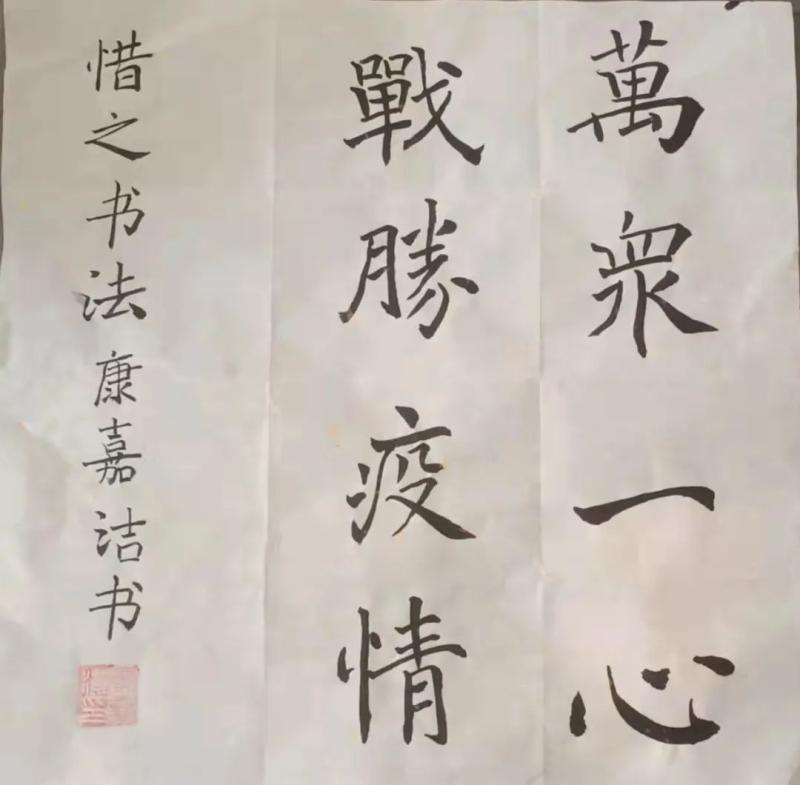 萬眾一心
戰勝疫情
惜之书法康嘉洁书